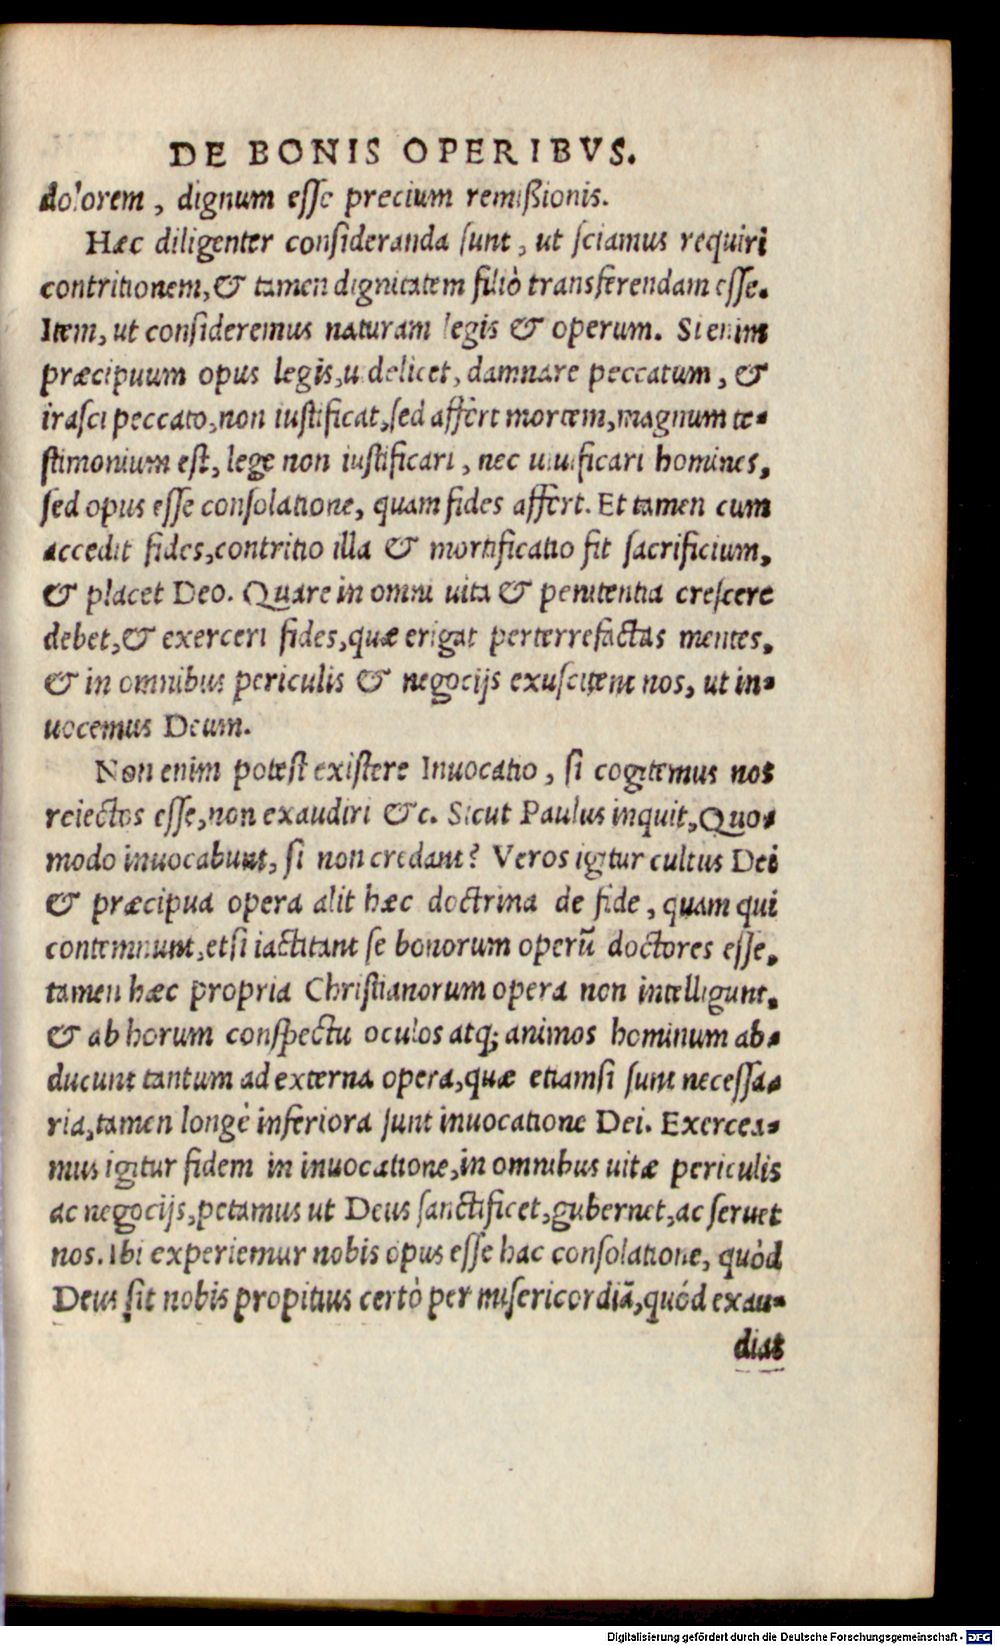 DE BONIS OPERIBVS.
dolorem, dignum esse precium remißionis.
Hæc diligenter consideranda sunt, ut sciamus requiri
contritionem, & tamen dignitatem filiò transferendam esse.
Item, ut consideremus naturam legis & operum. Si enim
præcipuum opus legis, uidelicet, damnare peccatum, &
irasci peccato, non iustificat, sed affért mortem, magnum te-
stimonium est, lege non iustificari, nec uiuificari homines,
sed opus esse consolatione, quam fides affért. Et tamen cum
accedit fides, contritio illa & mortificatio fit sacrificium,
& placet Deo. Quare in omni uita & penitentia crescere
debet, & exerceri fides, quæ erigat perterrefactas mentes,
& in omnibus periculis & negocijs exuscitent nos, ut in-
uocemus Deum.
Non enim potest existere Inuocatio, si cogitemus nos
reiectos esse, non exaudiri &c. Sicut Paulus inquit, Quo-
modo inuocabunt, si non credant? Veros igitur cultus Dei
& præcipua opera alit hæc doctrina de fide, quam qui
contemnunt, etsi iactitant se bonorum operũ doctores esse,
tamen hæc propria Christianorum opera non intelligunt,
& ab horum conspectu oculos atq; animos hominum ab-
ducunt tantum ad externa opera, quæ etiamsi sunt necessa-
ria, tamen longè inferiora sunt inuocatione Dei. Exercea-
mus igitur fidem in inuocatione, in omnibus uitæ periculis
ac negocijs, petamus ut Deus sanctificet, gubernet, ac seruet
nos. Ibi experiemur nobis opus esse hac consolatione, quòd
Deus sit nobis propitius certò per misericordiã, quód exau-
diat
Digitalisierung gefördert durch die Deutsche Forschungsgemeinschaft - DFG